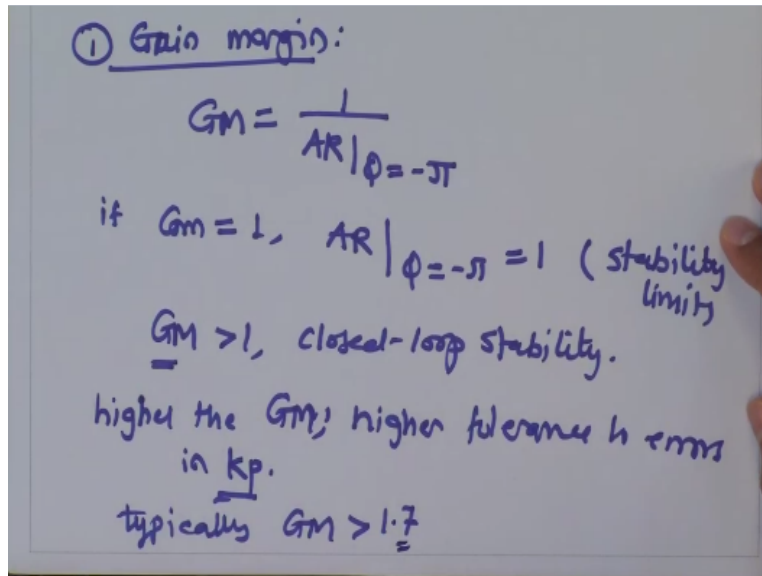 ① Gain margin:
GM = 1 / AR|φ=-π
if GM = 1, AR|φ=-π = 1 (stability
limits
GM > 1, closed-loop stability.
higher the GM; higher tolerance to errors
in kp.
typically GM > 1.7